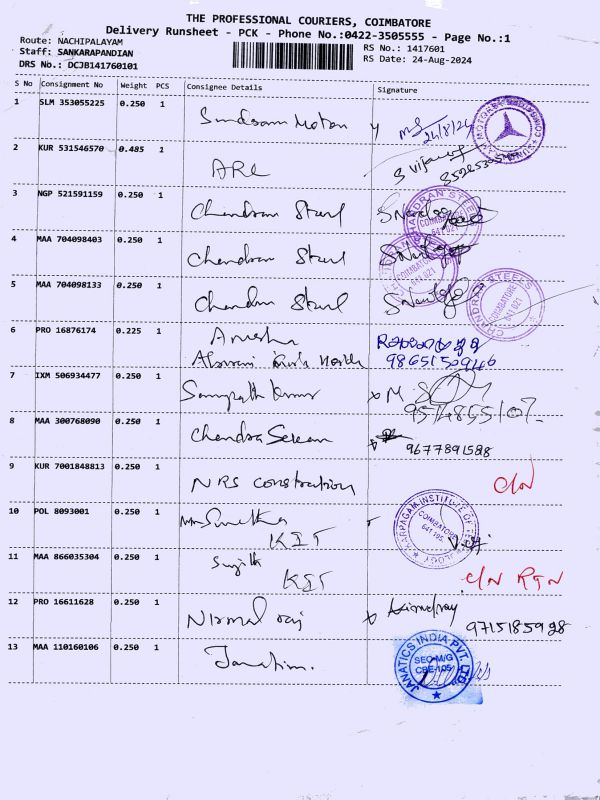 THE PROFESSIONAL COURIERS, COIMBATORE
Delivery Runsheet - PCK - Phone No.:0422-3505555 - Page No.:1
Route: NACHIPALAYAM
Staff: SANKARAPANDIAN
DRS No.: DCJB141760101
RS No.: 1417601
RS Date: 24-Aug-2024
S No Consignment No Weight PCS Consignee Details Signature
1 SLM 353055225 0.250 1 Sundaram Motors 24/8/24
2 KUR 531546570 0.485 1 ARC S Vijay
3 NGP 521591159 0.250 1 Chandran Steel
CHANDRAN STEELS COIMBATORE 641 021
4 MAA 704098403 0.250 1 Chandran Steel
5 MAA 704098133 0.250 1 Chandran Steel
CHANDRAN STEELS COIMBATORE 641 021
6 PRO 16876174 0.225 1
7 IXM 506934477 0.250 1 Sampath Kumar
8 MAA 300768090 0.250 1 Chandra Sekaran
9677891588
9 KUR 7001848813 0.250 1 NRS construction C/N
10 POL 8093001 0.250 1 KIT
KARPAGAM INSTITUTE OF COIMBATORE 641 105
11 MAA 866035304 0.250 1 Sujith
KIT C/N RTN
12 PRO 16611628 0.250 1 Nirmal raj 9715185928
13 MAA 110160106 0.250 1 Janatics
JANATICS INDIA PVT. LTD. CBE-105